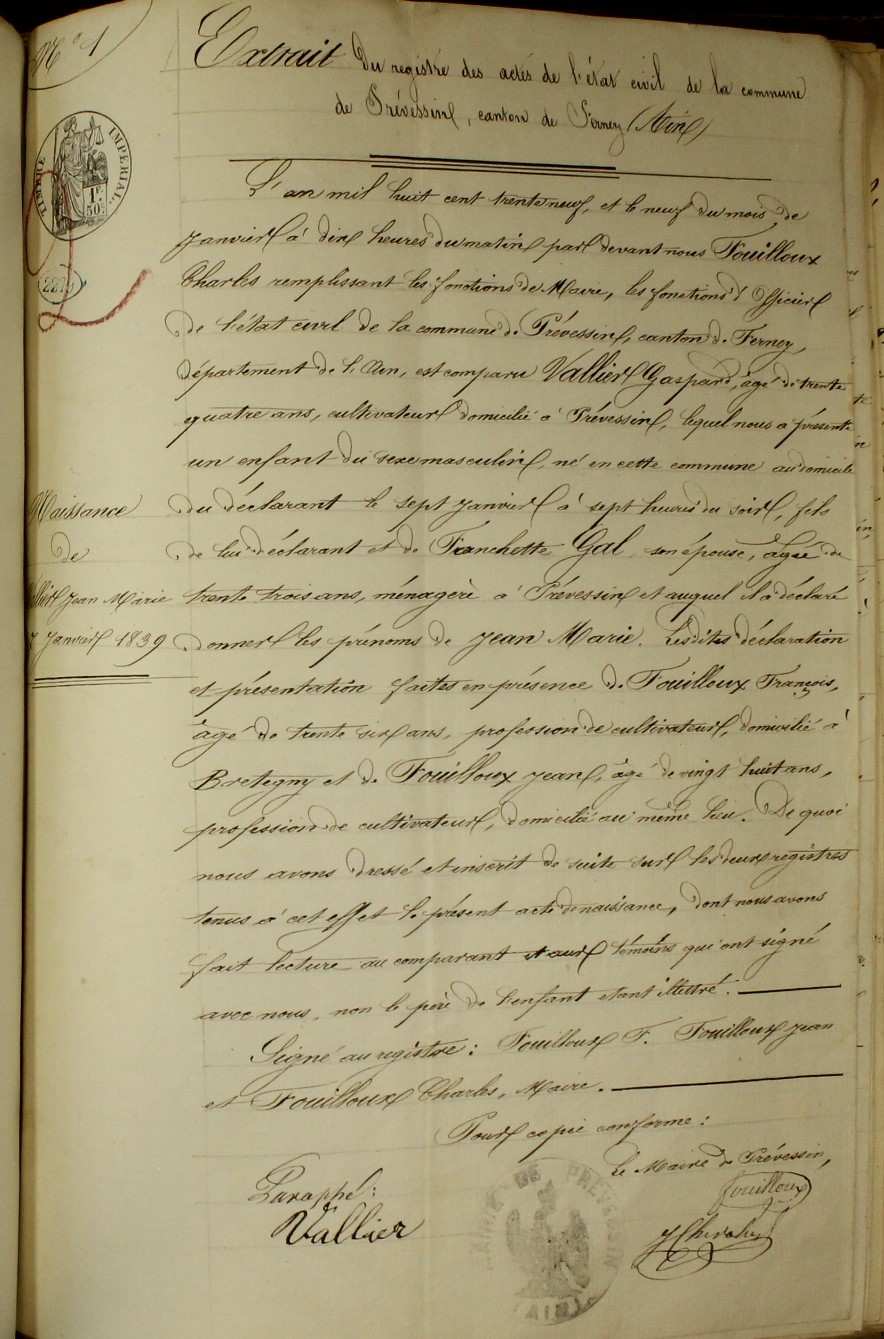 N° 1
Extrait Du registre des actes de l'état civil de la commune
de Prévessin, canton de Ferney (Ain)
TIMBRE IMPERIAL
1F. 50c.
L'an mil huit cent trente neuf, et le neuf du mois de
Janvier à dix heures du matin par devant nous Fouilloux
Charles remplissant les fonctions de Maire, les fonctions d'Officier
de l'état civil de la commune de Prévessin, canton de Ferney,
département de l'Ain, est comparu Vallier Gaspard, âgé de trente
quatre ans, cultivateur domicilié à Prévessin, lequel nous a présenté
un enfant du sexe masculin, né en cette commune au domicile
Naissance
de
Jean Marie
7 Janvier 1839
du déclarant le sept Janvier à sept heures du soir, fils
de lui déclarant et de Franchette Gal son épouse, âgée de
trente trois ans, ménagère à Prévessin et auquel il a déclaré
donner les prénoms de Jean Marie. Lesdites déclaration
et présentation faites en présence de Fouilloux François,
âgé de trente six ans, profession de cultivateur, domicilié à
Bretegny et de Fouilloux Jean, âgé de vingt huit ans,
profession de cultivateur, domicilié au même lieu. De quoi
nous avons dressé et inscrit de suite sur les deux registres
tenus à cet effet le présent acte de naissance, dont nous avons
fait lecture au comparant et aux témoins qui ont signé
avec nous, non le père de l'enfant etant illettré.
Signé au registre : Fouilloux F. Fouilloux Jean
et Fouilloux Charles, Maire.
Pour copie conforme :
Le Maire de Prévessin,
Fouilloux
Paraphé :
Vallier
MAIRIE DE PREVESSIN
(AIN)